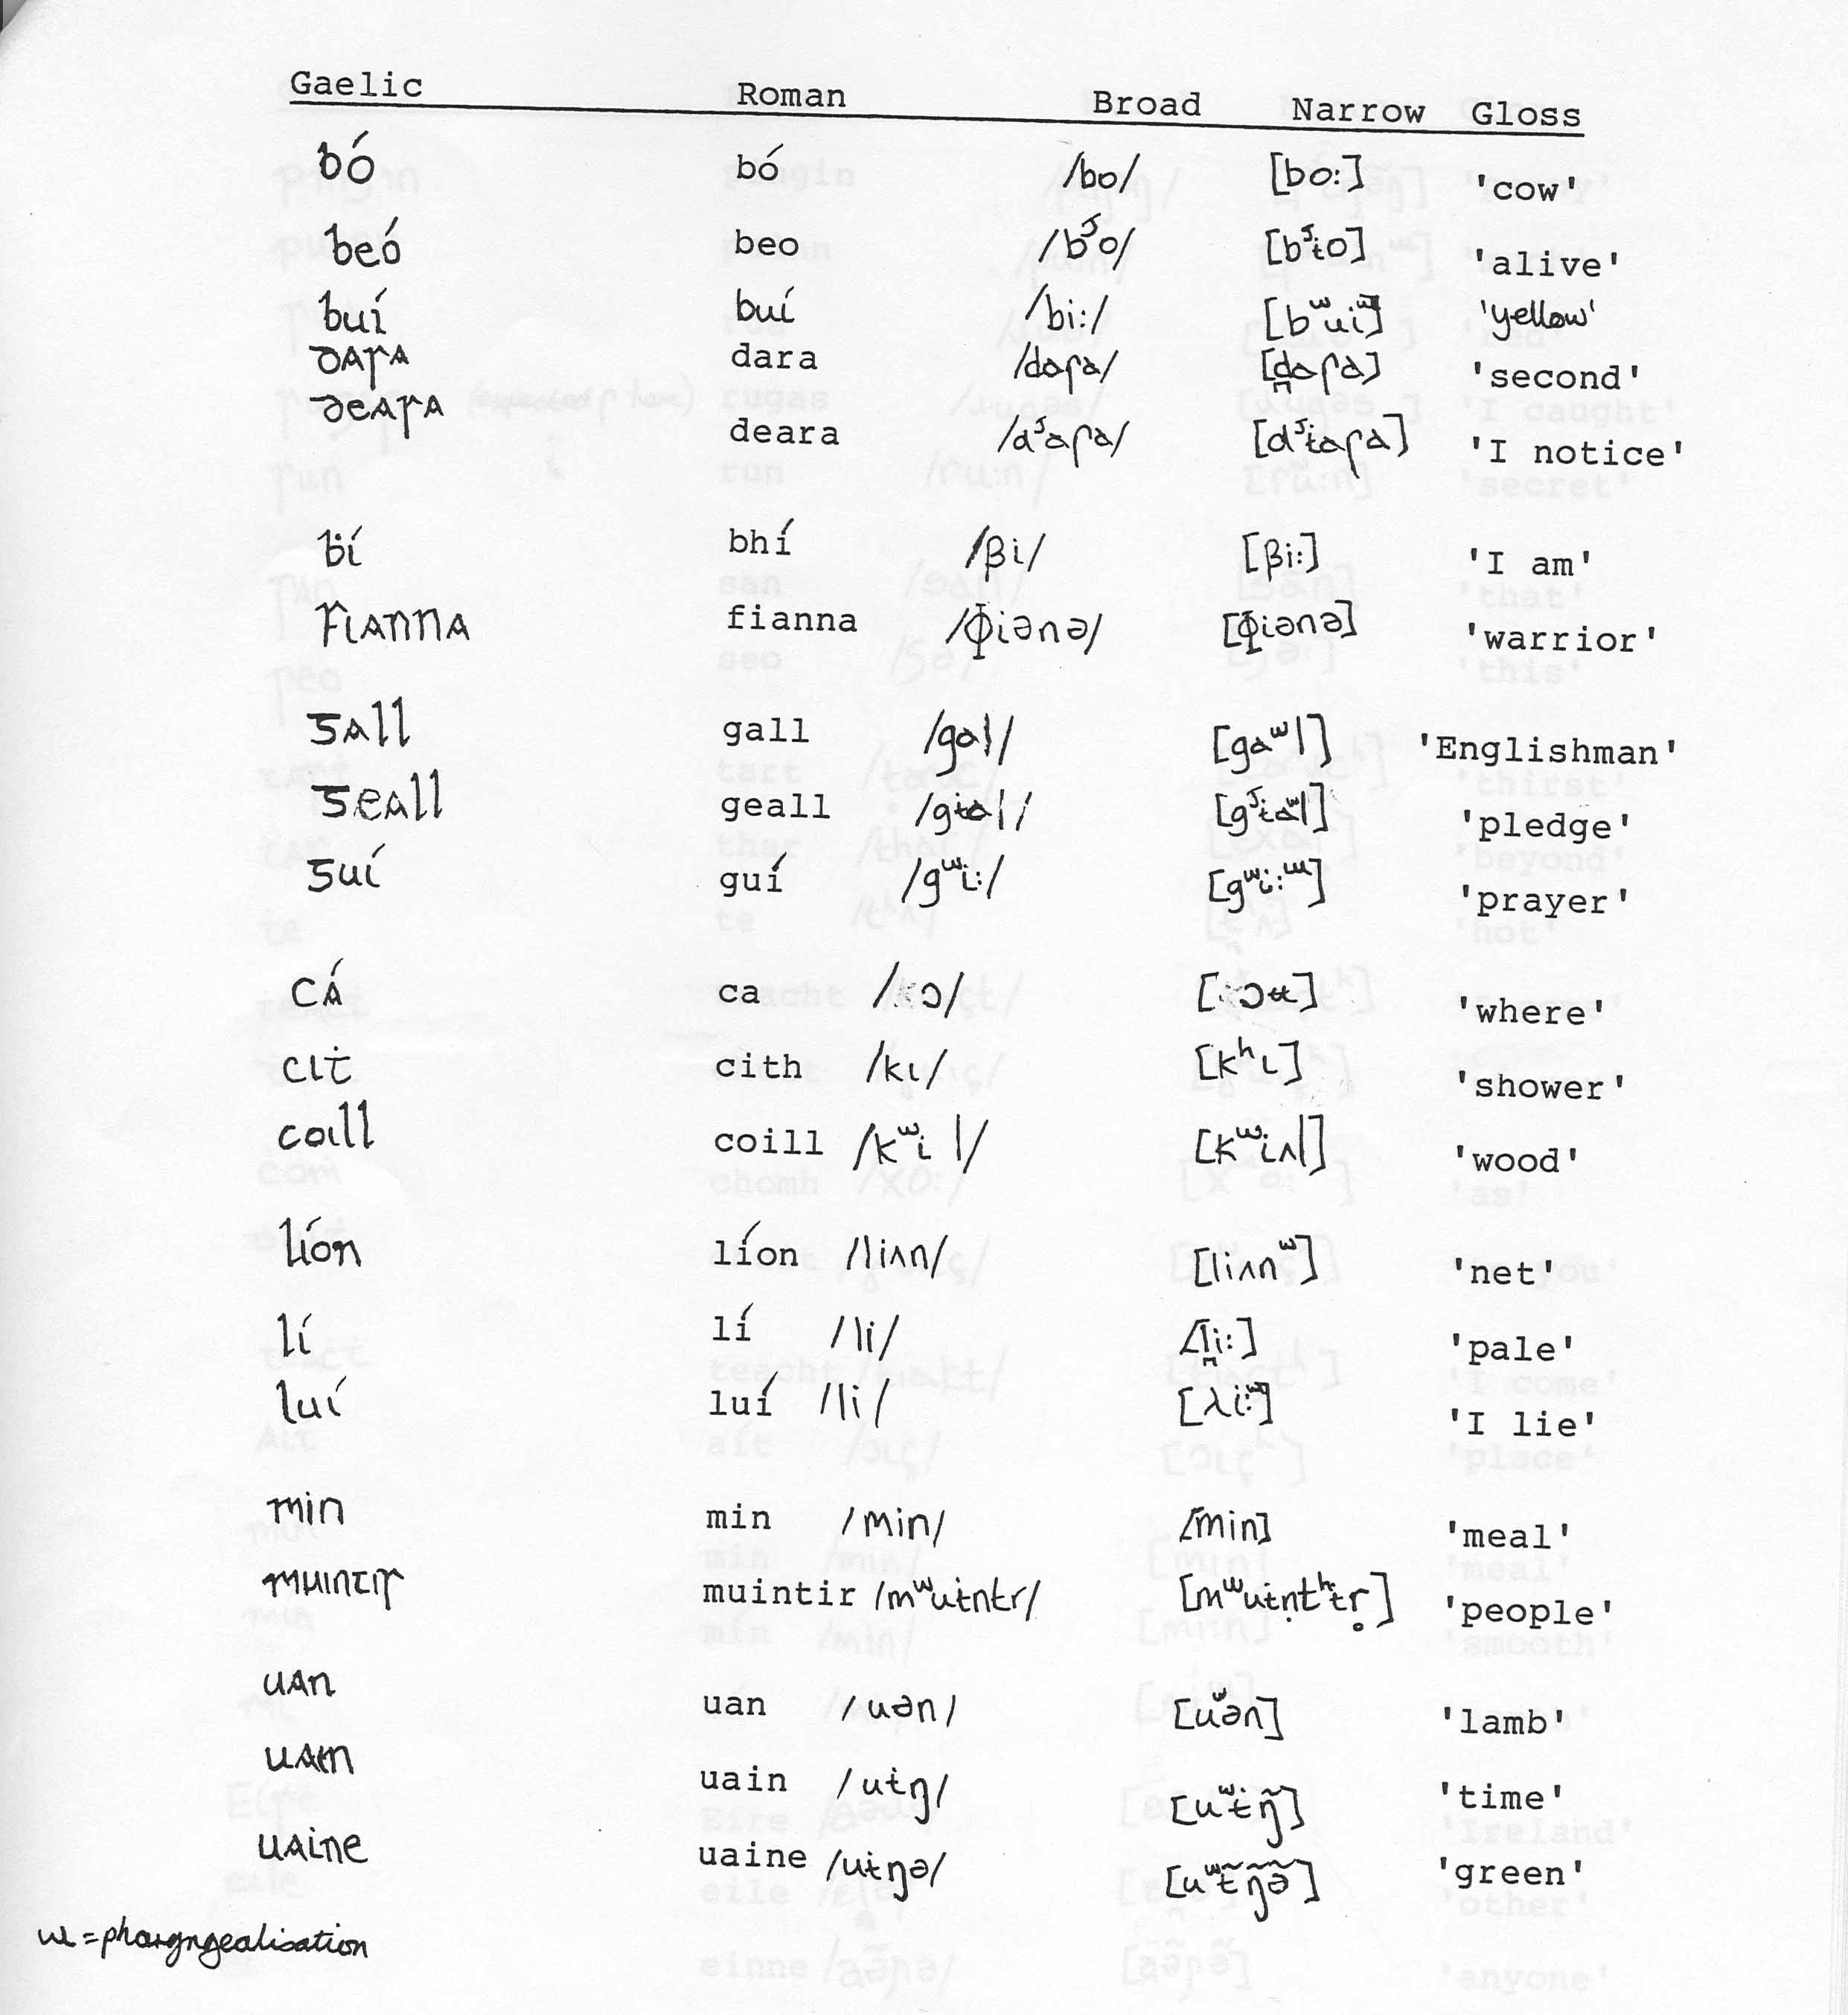 Gaelic Roman Broad Narrow Gloss
bó bó /bo/ [bo:] 'cow'
beó beo /bᴶo/ [bᴶɨo] 'alive'
buí buí /bi:/ 'yellow'
dara dara /daɾa/ [d̪aɾa] 'second'
deara deara /dᴶaɾa/ [dᴶɨaɾa] 'I notice'
ḃí bhí /βi/ [βi:] 'I am'
Fianna fianna /ɸiənə/ [ɸiənə] 'warrior'
gall gall /gal/ [gaʷl] 'Englishman'
geall geall /gɨal/ [gᴶɨaʷl] 'pledge'
guí guí /gʷi:/ 'prayer'
cá ca 'where'
ciṫ cith /kɩ/ [kʰɩ] 'shower'
coill coill /kʷi l/ [kʷiʌl] 'wood'
líon líon /liʌn/ [liʌnʷ] 'net'
lí lí /li/ [l̪i:] 'pale'
luí luí /li/ 'I lie'
min min /min/ [min] 'meal'
muintir muintir /mʷuɨntr/ [mʷuɨṇtʰɨr̥] 'people'
uan uan /uən/ [uʷən] 'lamb'
uain uain /uɨŋ/ [uʷɨŋ̃] 'time'
uaine uaine /uɨŋə/ [uʷɨ̃ŋ̃ə̃] 'green'
ɯ = pharyngealisation